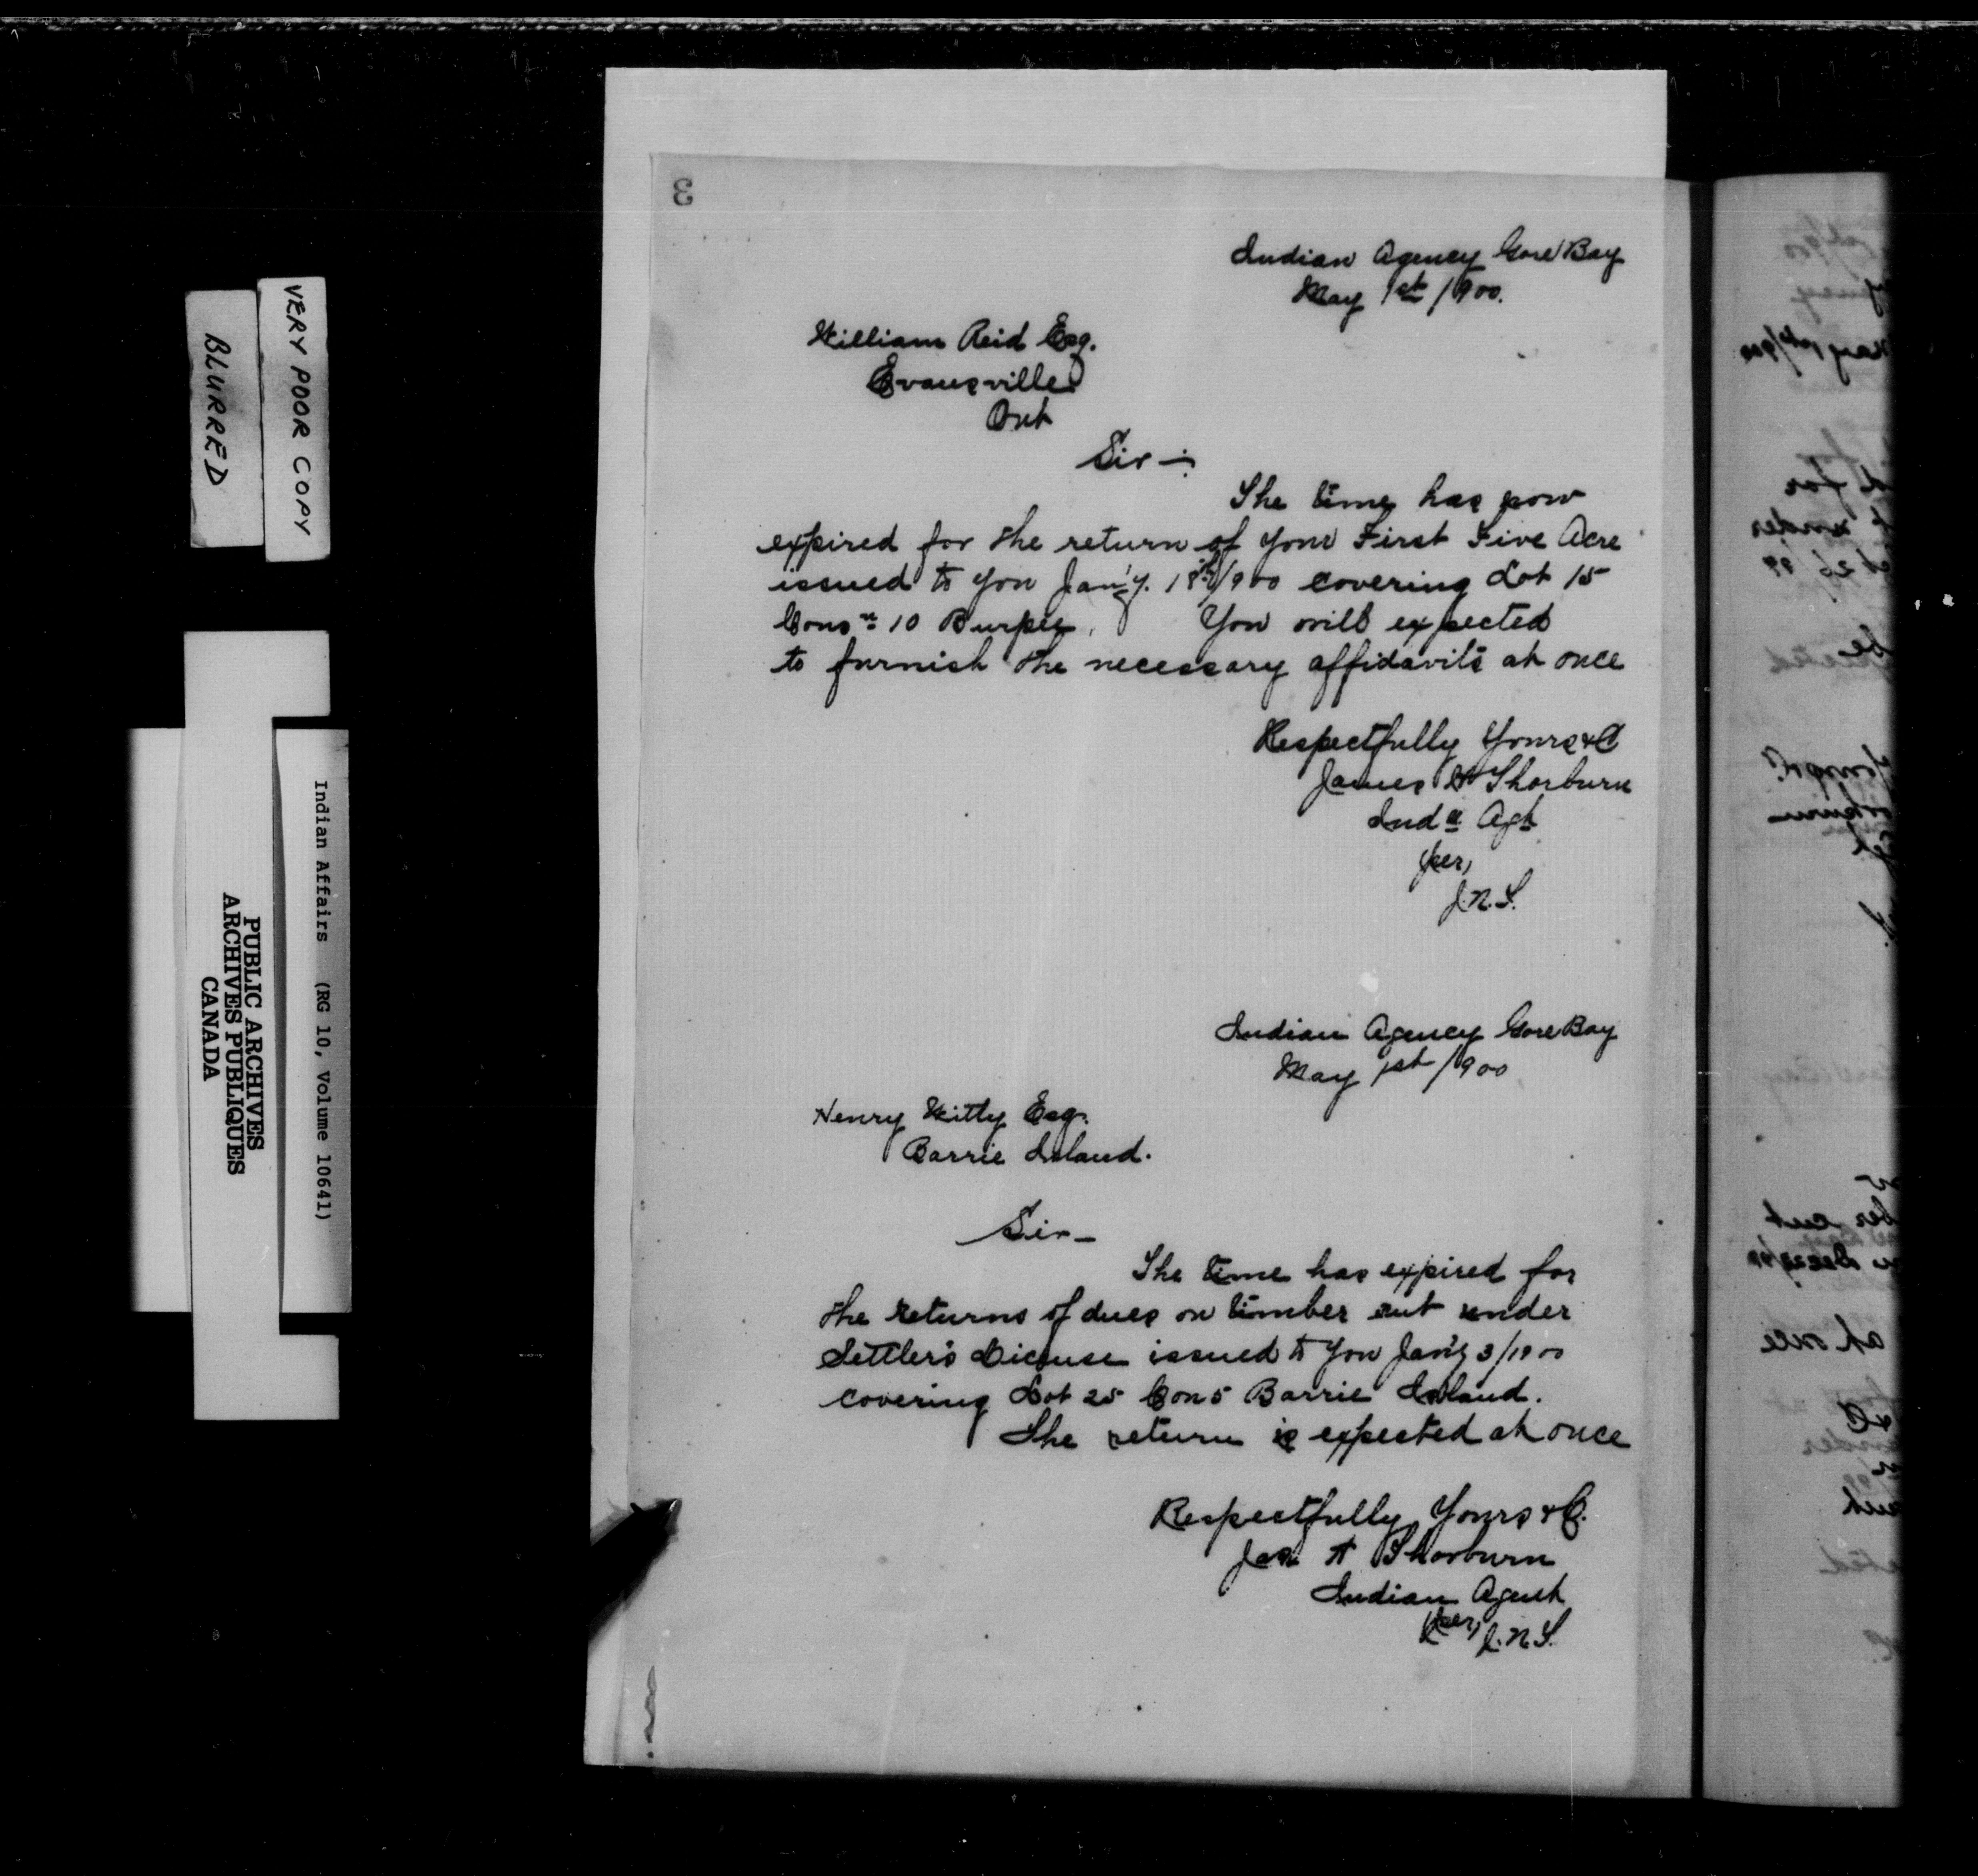 3
Indian Agency Gore Bay
May 1st/1900.
William Reid Esq.
Evansville
Ont
Sir -:
The time has now
expired for the return of your First Five Acre
issued to you Jan'y. 18th/900 covering Lot 15
Consn 10 Burpee. You will expected
to furnish the necessary affidavits at once
Respectfully Yours &C
James H Thorburn
Indn Agt
per,
J.N.T.
Indian Agency Gore Bay
May 1st/900
Henry Witty Esq.
Barrie Island.
Sir -
The time has expired for
the returns of dues on timber cut under
Settler's License issued to you Jan'y 3/1900
covering Lot 25 Con 5 Barrie Island.
The return is expected at once
Respectfully Yours &C.
Jas H Thorburn
Indian Agent
per, J.N.T.
VERY POOR COPY
BLURRED
Indian Affairs (RG 10, Volume 10641)
PUBLIC ARCHIVES
ARCHIVES PUBLIQUES
CANADA